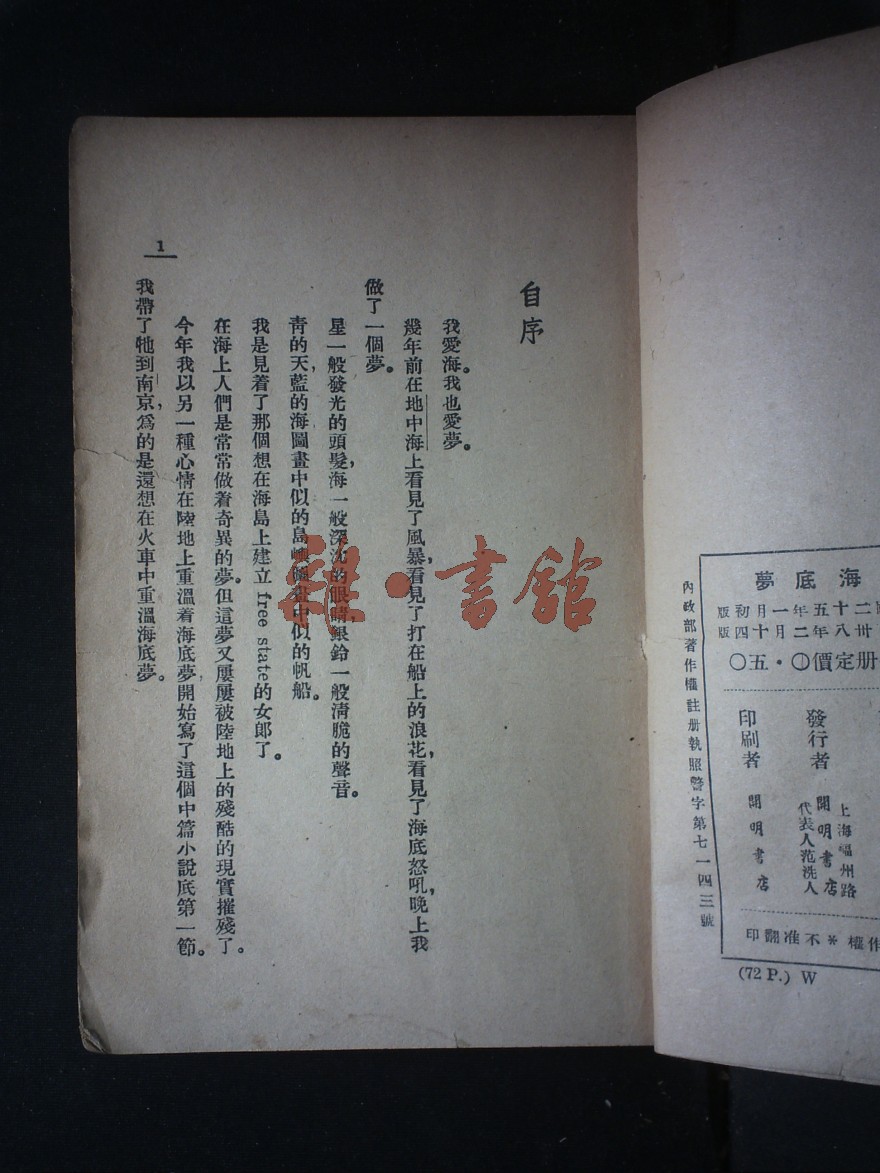 自序
我愛海。我也愛夢。
幾年前在地中海上看見了風暴,看見了打在船上的浪花,看見了海底怒吼,晚上我
做了一個夢。
星一般發光的頭髮,海一般深沈的眼睛,銀鈴一般清脆的聲音。
青的天,藍的海,圖畫中似的島嶼,圖畫中似的帆船。
我是見着了那個想在海島上建立 free state 的女郎了。
在海上人們是常常做着奇異的夢。但這夢又屢屢被陸地上的殘酷的現實摧殘了。
今年我以另一種心情在陸地上重溫着海底夢,開始寫了這個中篇小說底第一節。
我帶了牠到南京,爲的是還想在火車中重溫海底夢。
1
雜·書館
海底夢
二十五年一月初版
卅八年二月十四版
册定價〇·五〇
上海福州路
發行者 開明書店
代表人范洗人
印刷者 開明書店
作權*不准翻印
內政部著作權註册執照警字第七一四三號
(72 P.) W